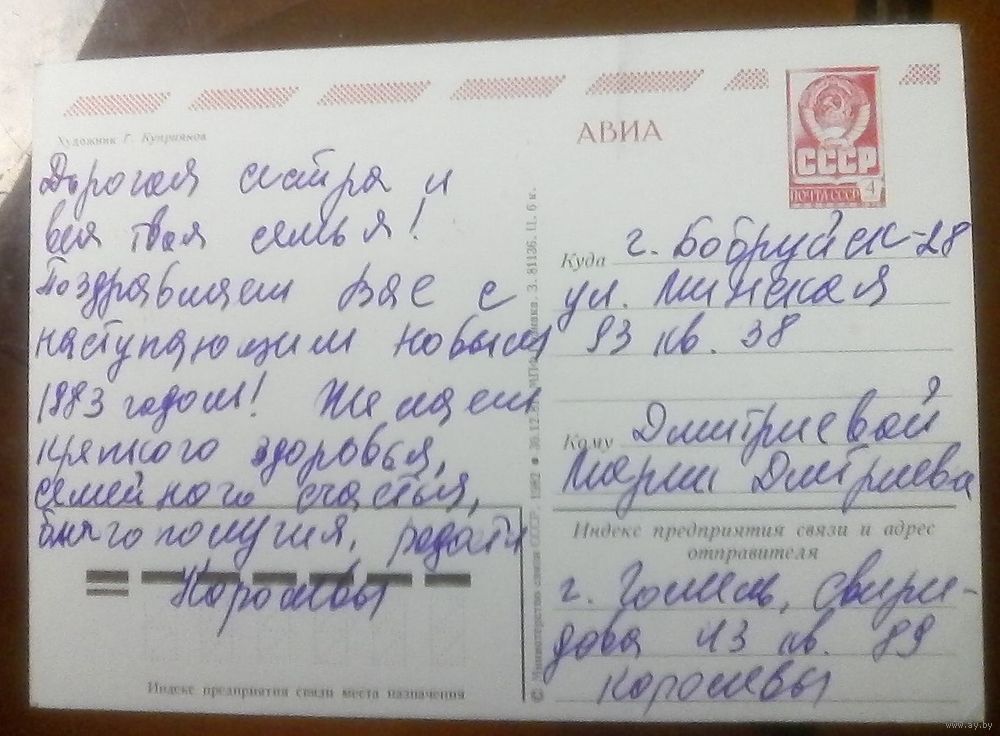 Художник Г. Куприянов
АВИА
СССР
ПОЧТА СССР 4
Дорогая сестра и
вся твоя семья!
Поздравляем Вас с
наступающим новым
1983 годом! Желаем
крепкого здоровья,
семейного счастья,
благополучия, радости
Королевы
Индекс предприятия связи места назначения
© Министерство связи СССР, 1982 З. 81136. Ц. 6 к.
Куда г. Бобруйск-28
ул. Минская
93 кв. 38
Кому Дмитриевой
Марии Дмтриевна
Индекс предприятия связи и адрес
отправителя
г. Гомель, Свири-
дова 43 кв. 89
Королевы
www.ay.by